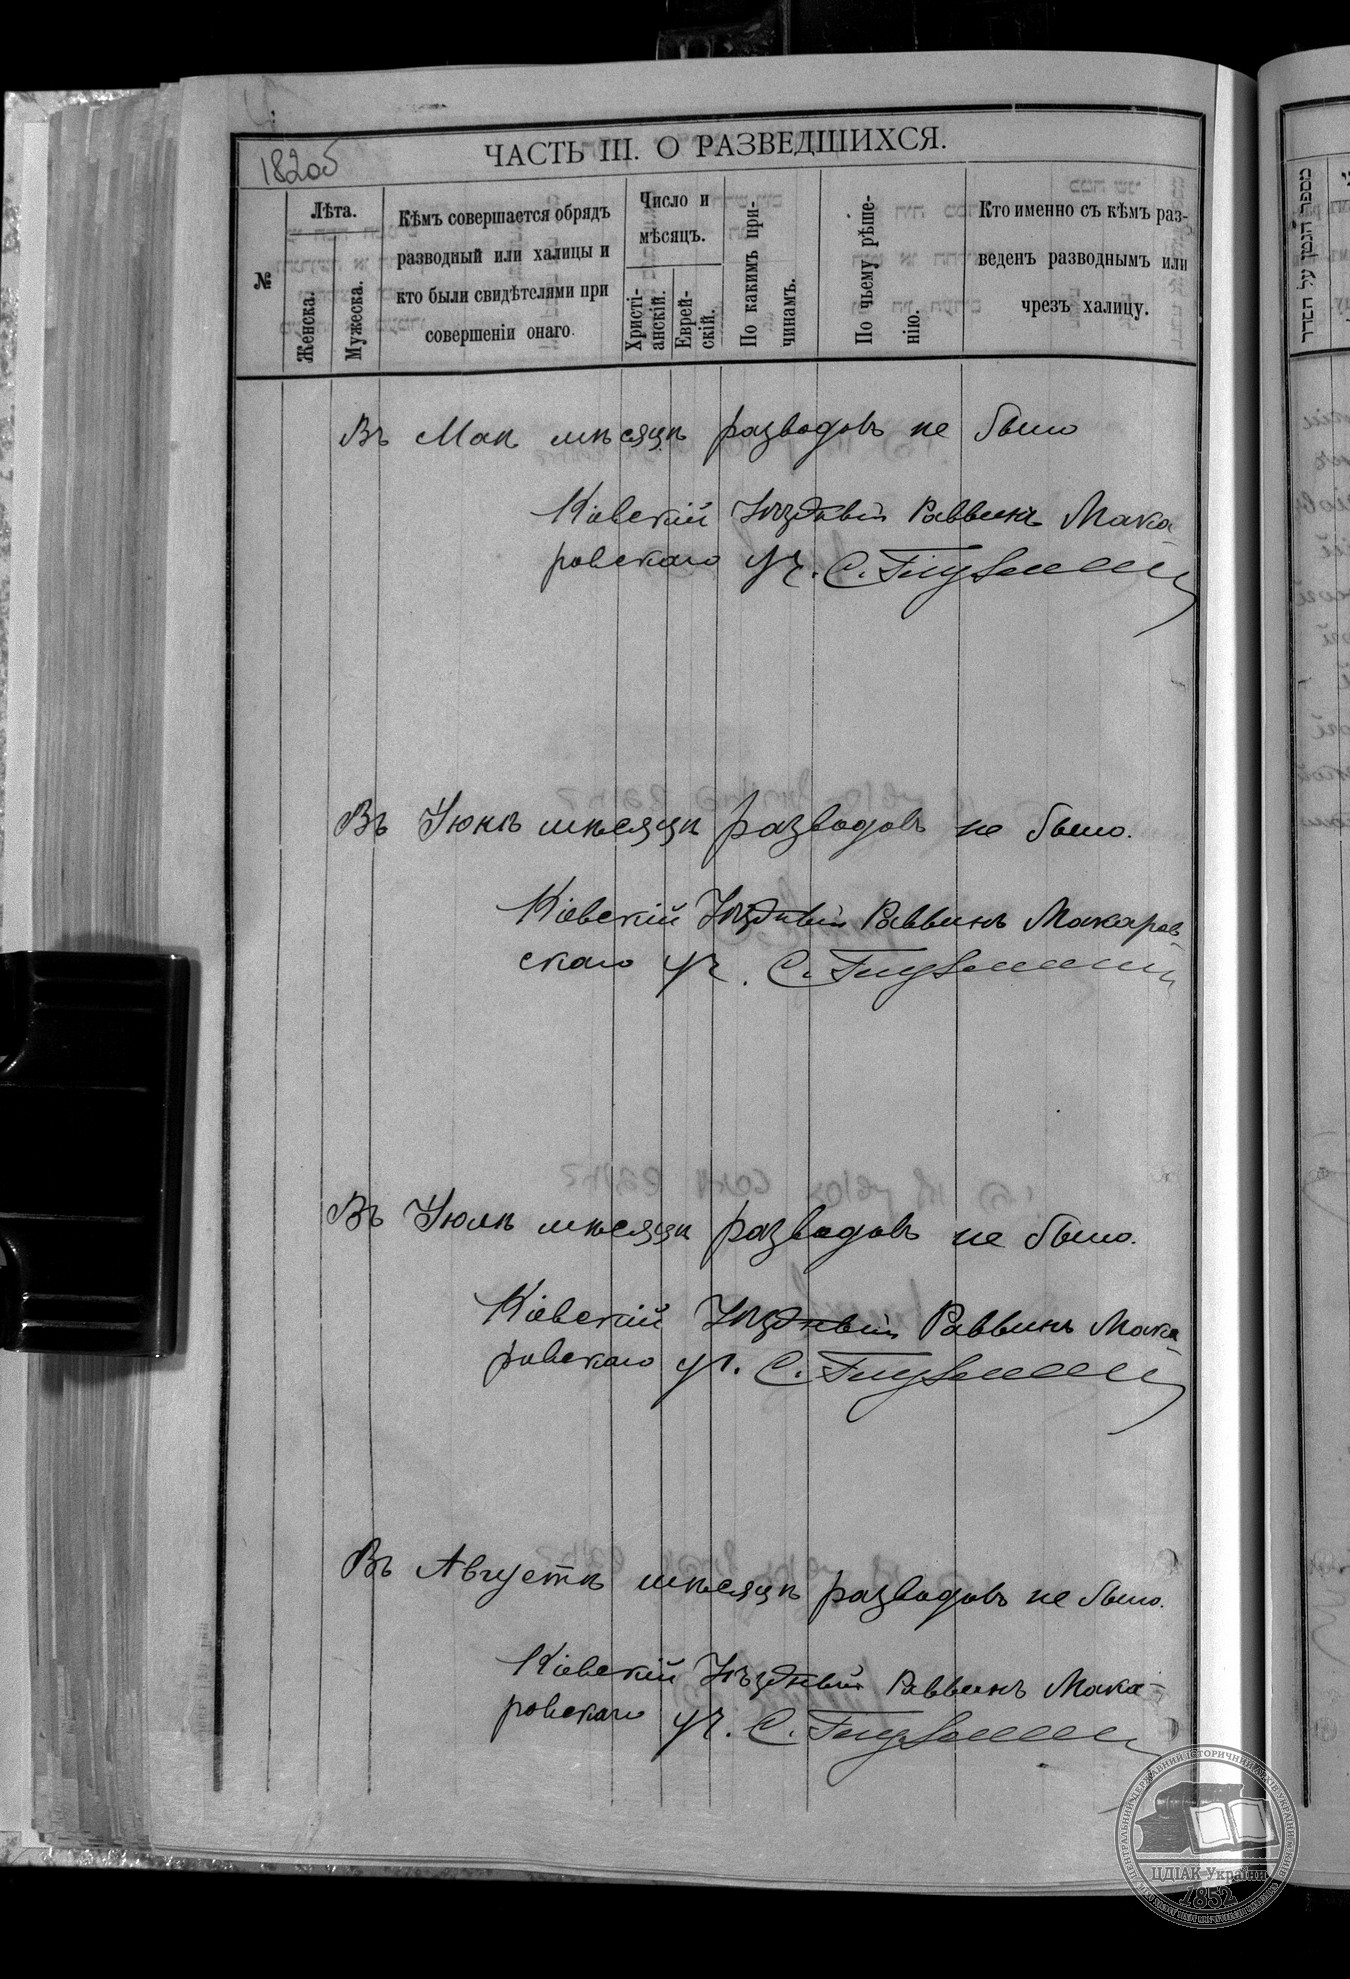 182об
ЧАСТЬ III. О РАЗВЕДШИХСЯ.
№
Лѣта.
Женска.
Мужеска.
Кѣмъ совершается обрядъ
разводный или халицы и
кто были свидѣтелями при
совершеніи онаго.
Число и
мѣсяцъ.
Христі-
анскій.
Еврей-
скій.
По какимъ при-
чинамъ.
По чьему рѣше-
нію.
Кто именно съ кѣмъ раз-
веденъ разводнымъ или
чрезъ халицу.
Въ Маѣ мѣсяцѣ разводовъ не было
Кіевскій Уѣздный Раввинъ Мака
ровскаго уч. С.
Въ Іюнѣ мѣсяцѣ разводовъ не было.
Кіевскій Уѣздный Раввинъ Макаров
скаго уч. С.
Въ Іюлѣ мѣсяцѣ разводовъ не было.
Кіевскій Уѣздный Раввинъ Мака
ровскаго уч. С.
Въ Августѣ мѣсяцѣ разводовъ не было.
Кіевскій Уѣздный Раввинъ Мака-
ровскаго уч. С.
מספר הגטין על הסדר
ЦЕНТРАЛЬНИЙ ДЕРЖАВНИЙ ІСТОРИЧНИЙ АРХІВ УКРАЇНИ
ЦДІАК України
1852